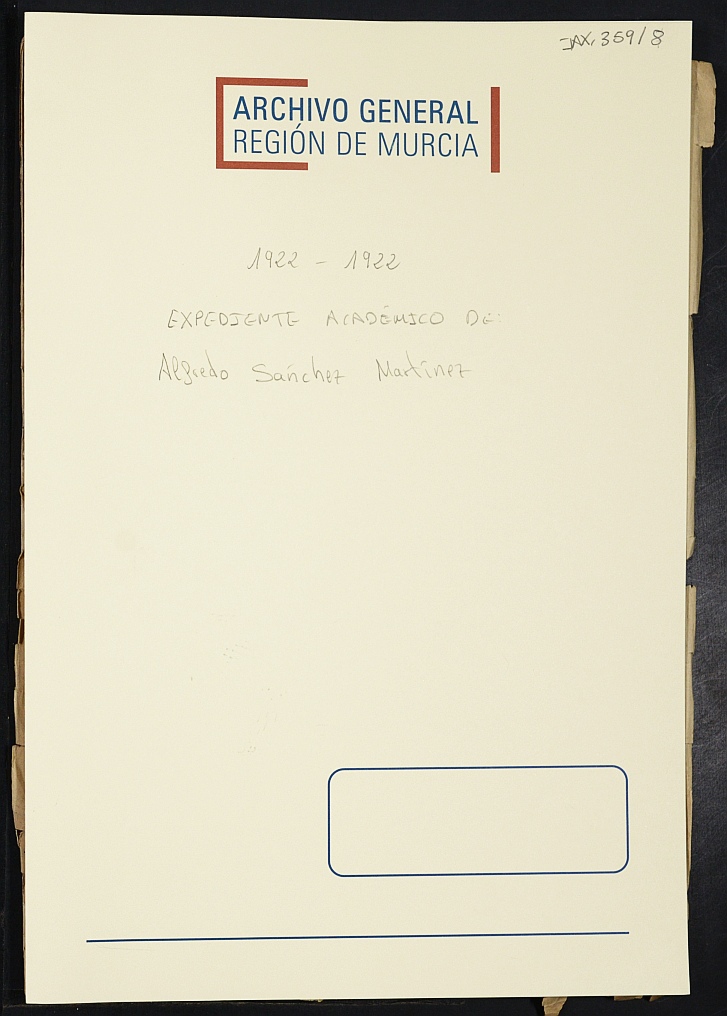 IAX, 359/8
ARCHIVO GENERAL
REGIÓN DE MURCIA
1922 - 1922
EXPEDIENTE ACADÉMICO DE:
Alfredo Sánchez Martínez